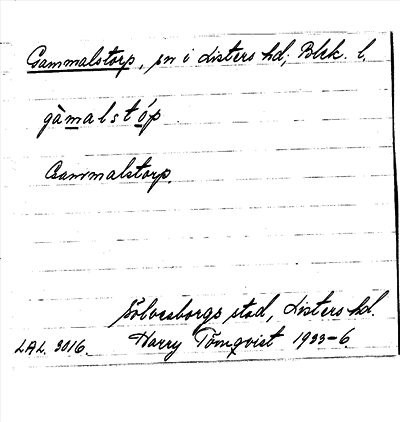 Gammalstorp, sn i Listers hd, Blek. l.
gàmalstóp
Gammalstorp.
Sölvesborgs stad, Listers hd.
LAL. 3016. Harry Törnqvist 1933-6